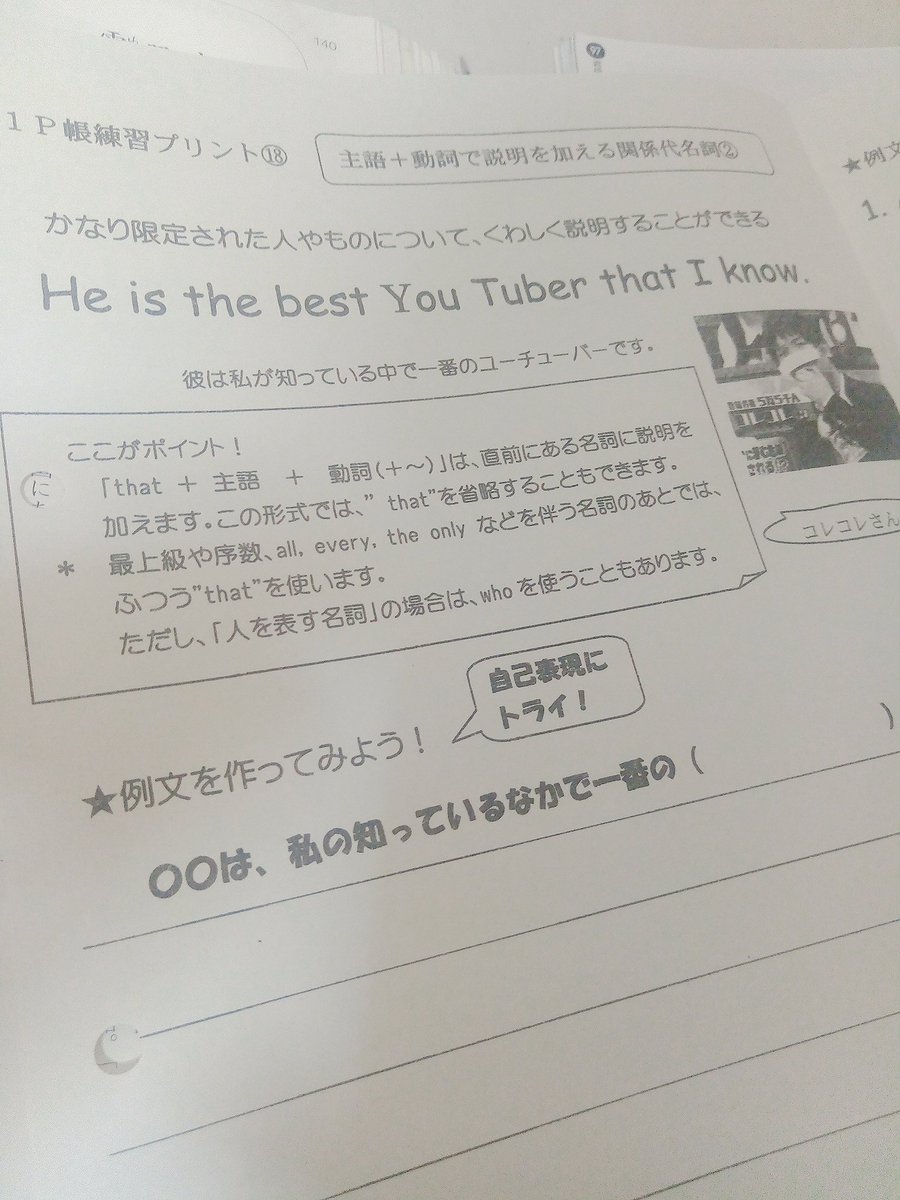 140
97
1P帳練習プリント⑱
主語+動詞で説明を加える関係代名詞②
★例文
1.
かなり限定された人やものについて、くわしく説明することができる
He is the best You Tuber that I know.
彼は私が知っている中で一番のユーチューバーです。
ここがポイント!
「that + 主語 + 動詞(+~)」は、直前にある名詞に説明を
加えます。この形式では、” that”を省略することもできます。
* 最上級や序数、all, every, the only などを伴う名詞のあとでは、
ふつう”that”を使います。
ただし、「人を表す名詞」の場合は、whoを使うこともあります。
に
コレコレさん
自己表現に
トライ!
★例文を作ってみよう!
〇〇は、私の知っているなかで一番の( )